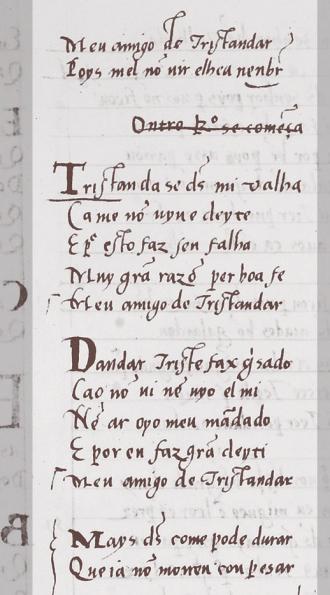 Meu amigo de Tristandar
Poys mel nō vir elheu nenbr
Outro Rº se começa
Tristanda se dṡ mi valha
Ca me nō uyu e deyte
E pº esto faz sen falha
Muy grā razō per boa fe
Meu amigo de Tristandar
Dandar Triste fax guisado
Cao nō ui nē uyo el mi
Nē ar oyo meu mādado
E por en faz grā deyti
Meu amigo de Tristandar
Mays dṡ come pode durar
Que ia nō moreu con pesar